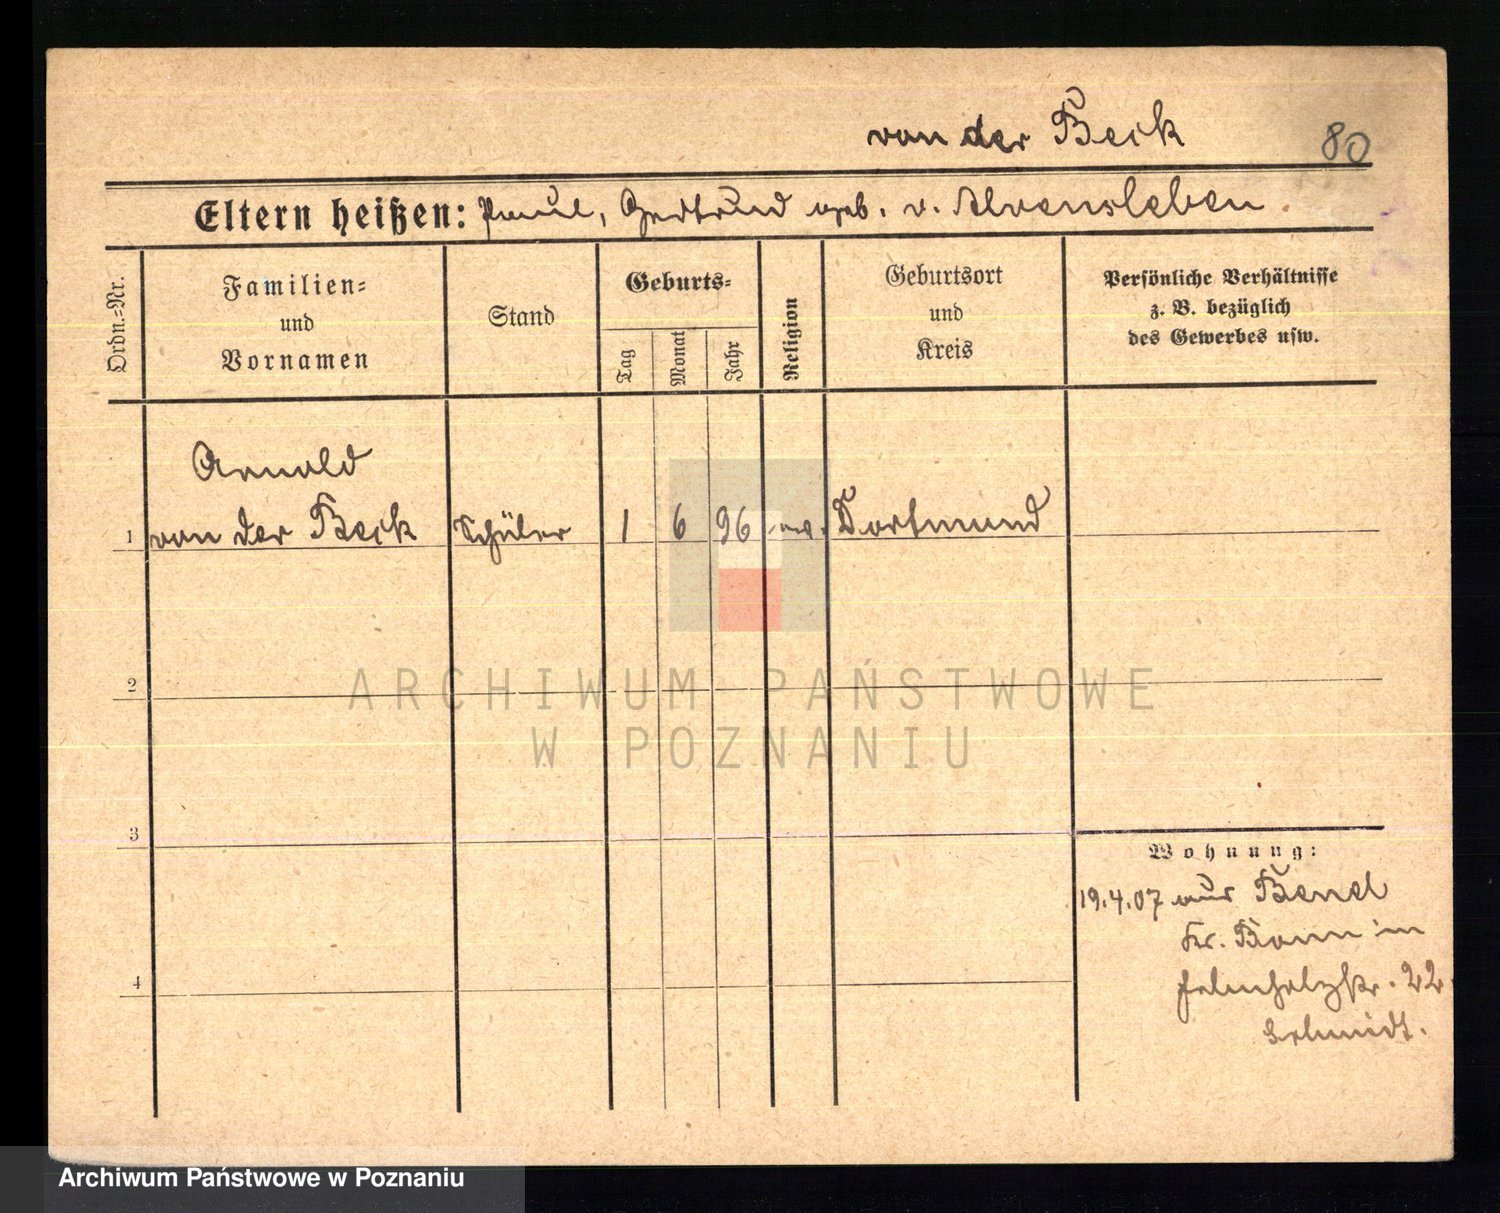 von der Beck 80
Eltern heißen: Paul, Gertrud geb. v. Alvensleben.
Ordn.-Nr.
Familien-
und
Vornamen
Stand
Geburts-
Tag
Monat
Jahr
Religion
Geburtsort
und
Kreis
Persönliche Verhältnisse
z. B. bezüglich
des Gewerbes usw.
Arnold
1 von der Beck Schüler 1 6 96 ev. Dortmund
2
3
4
Wohnung:
19.4.07 aus
Kr. Bonn in
22
Schmidt.
ARCHIWUM PAŃSTWOWE
W POZNANIU
Archiwum Państwowe w Poznaniu